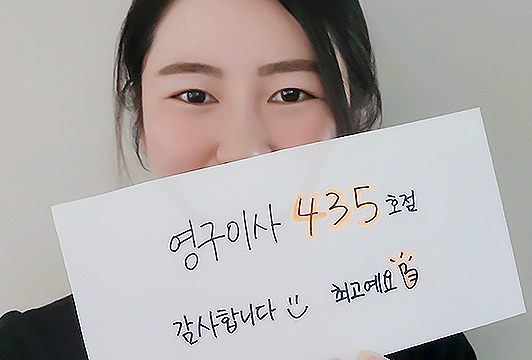 영구이사 435호점
감사합니다 최고예요